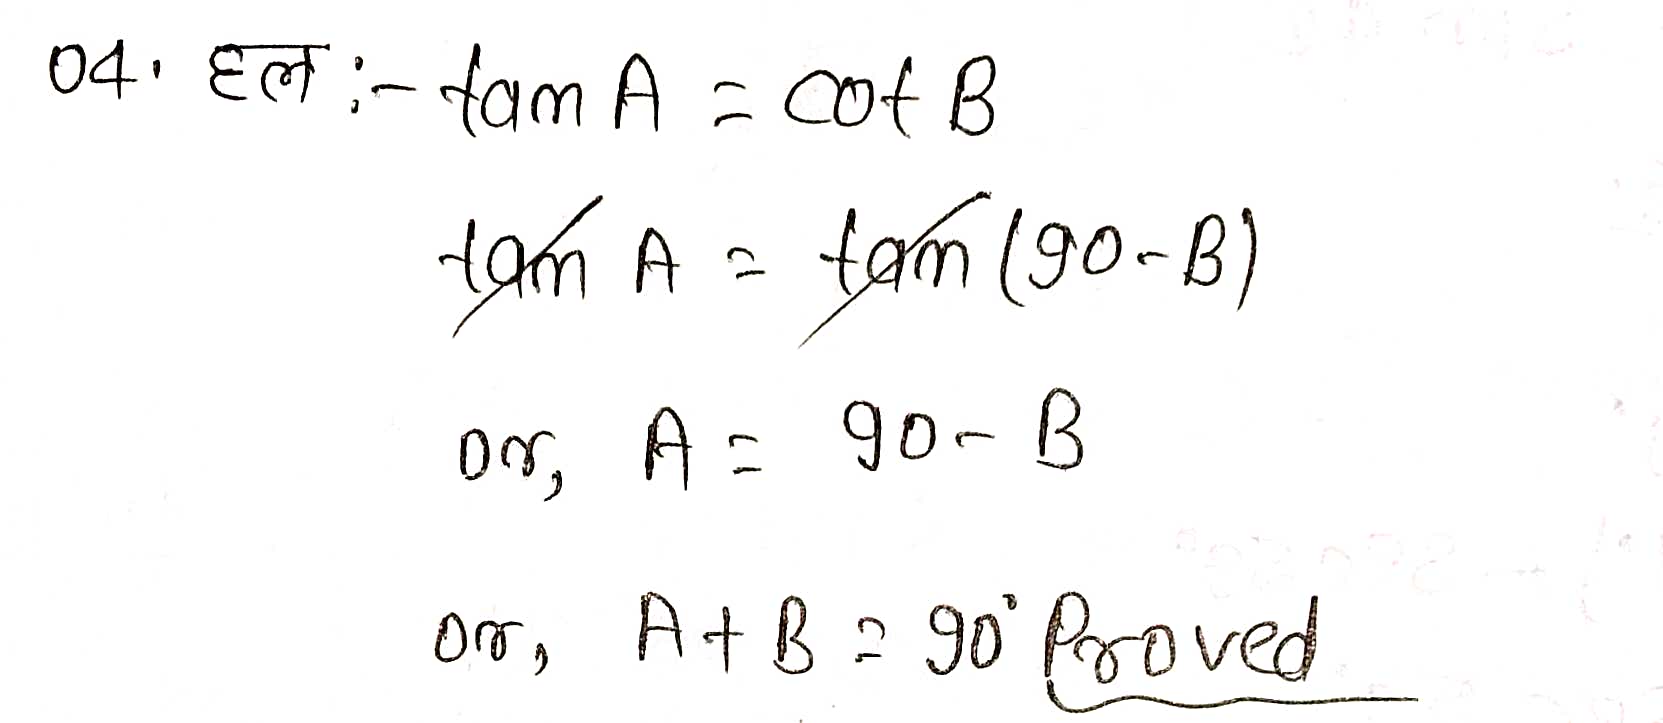 04. हल :- tan A = cot B
tan A = tan (90 - B)
or, A = 90 - B
or, A + B = 90° Proved